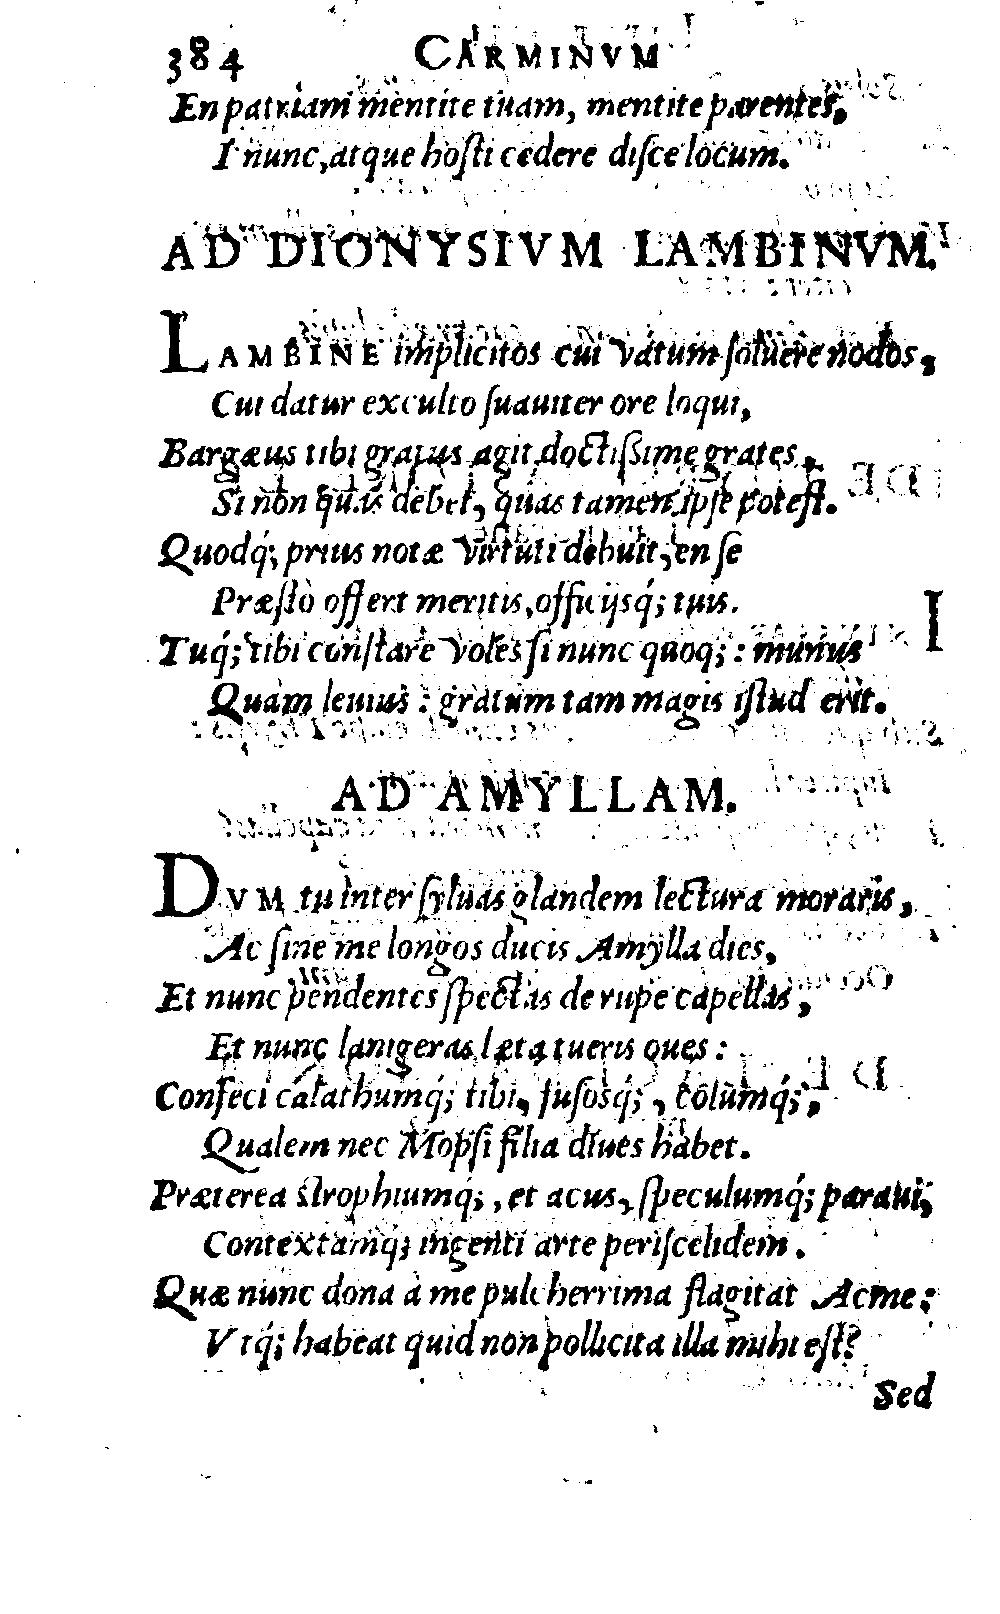 384 CARMINVM
En patriam mentite tuam, mentite parentes,
I nunc, atque hosti cedere disce locum.
AD DIONYSIVM LAMBINVM.
LAMBINE implicitos cui vatum soluere nodos,
Cui datur exculto suauiter ore loqui,
Bargæus tibi gratus agit doctissime grates,
Si non quas debet, quas tamen ipse potest.
Quodq́; prius notæ virtuti debuit, en se
Præstò offert meritis, officijsq́; tuis.
Tuq́; tibi constare voles si nunc quoq;: munus
Quàm leuius: gratum tam magis istud erit.
AD AMYLLAM.
DVM tu inter syluas glandem lectura moraris,
Ac sine me longos ducis Amylla dies,
Et nunc pendentes spectas de rupe capellas,
Et nunc lanigeras læta tueris oues:
Confeci calathumq́; tibi, fusosq́;, columq́;,
Qualem nec Mopsi filia diues habet.
Præterea strophiumq́;, et acus, speculumq́; paraui,
Contextamq́; ingenti arte periscelidem.
Quæ nunc dona à me pulcherrima flagitat Acme:
Vtq́; habeat quid non pollicita illa mihi est?
Sed